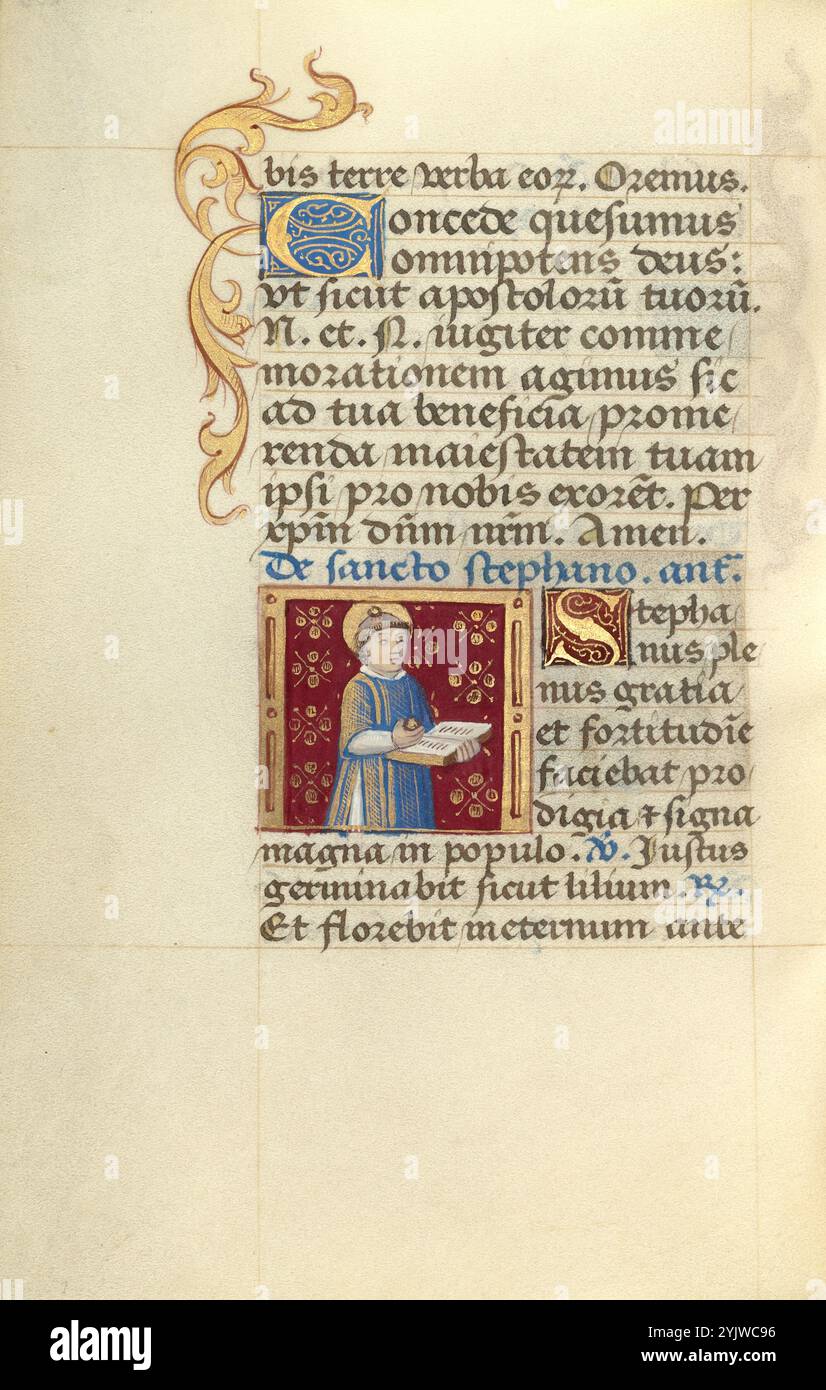 bis terre verba eoꝝ. Oremus.
Concede quesumus
omnipotens deus:
vt sicut apostolorū tuorū.
N. et. N. iugiter comme
morationem agimus sic
ad tua beneficia prome
renda maiestatem tuam
ipsi pro nobis exorēt. Per
xp̄m dn̄m nr̄m. Amen.
De sancto stephano. ant̄.
Stepha
nus ple
nus gratia
et fortitudīe
faciebat pro
digia ⁊ signa
magna in populo. ℣. Justus
germinabit sicut lilium. ℟.
Et florebit in eternum ante
a alamy
alamy
Image ID: 2YJWC96
www.alamy.com